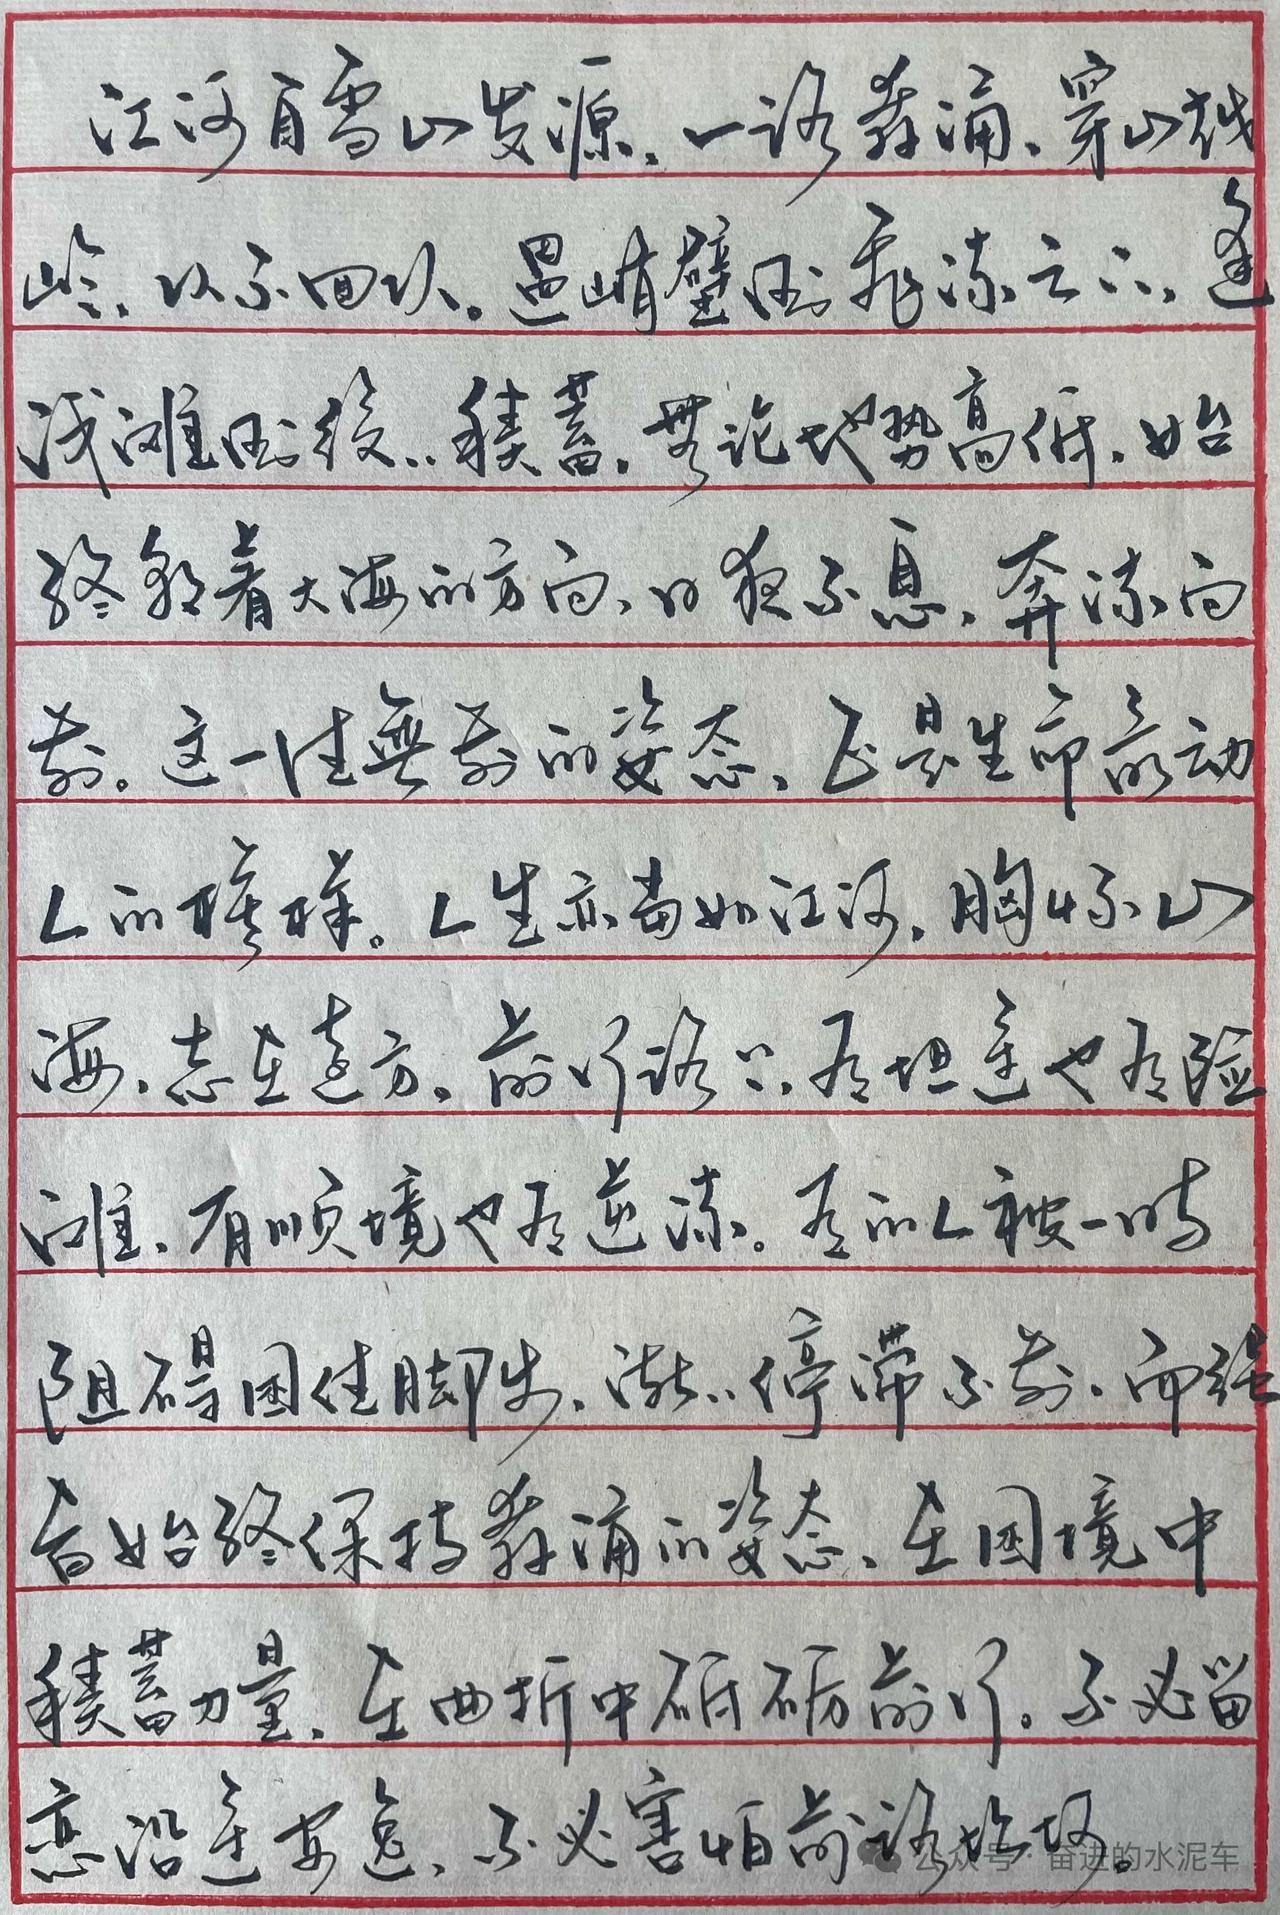 江河自雪山发源，一路奔涌，穿山越
岭，从不回头。遇峭壁则飞流而下，逢
浅滩则缓缓积蓄，无论地势高低，始
终朝着大海的方向，日夜不息，奔流向
前。这一往無前的姿态，正是生命最动
人的模样。人生亦当如江河，胸怀山
海，志在远方。前行路上，有坦途也有险
滩，有顺境也有逆流。有的人被一时
阻碍困住脚步，渐渐停滞不前，而强
者始终保持奔涌的姿态，在困境中
積蓄力量，在曲折中砥砺前行。不必留
恋沿途安逸，不必害怕前路坎坷。
公众号·奋进的水泥车